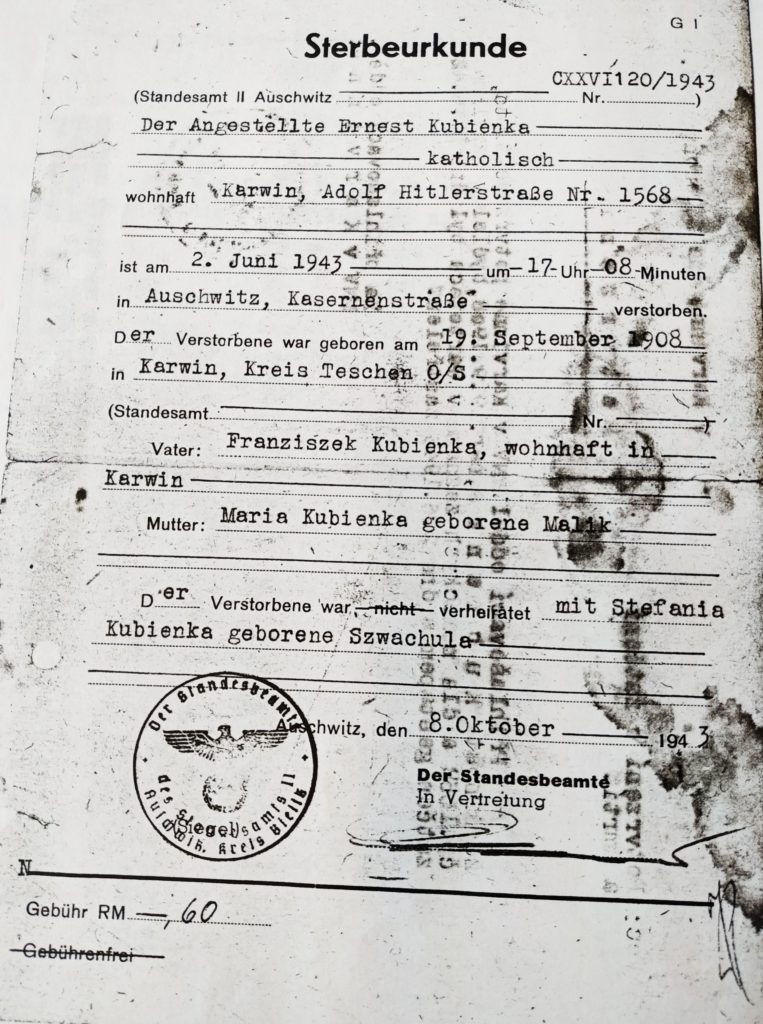 G I
Sterbeurkunde
CXXVI120/1943
(Standesamt II Auschwitz Nr. )
Der Angestellte Ernest Kubienka
katholisch
wohnhaft Karwin, Adolf Hitlerstraße Nr. 1568
ist am 2. Juni 1943 um 17 Uhr 08 Minuten
in Auschwitz, Kasernenstraße verstorben.
Der Verstorbene war geboren am 19. September 1908
in Karwin, Kreis Teschen O/S
(Standesamt Nr. )
Vater: Franziszek Kubienka, wohnhaft in
Karwin
Mutter: Maria Kubienka geborene Malik
Der Verstorbene war nicht verheiratet mit Stefania
Kubienka geborene Szwachula
Auschwitz, den 8. Oktober 1943
Der Standesbeamte
In Vertretung
Der Standesbeamte
des Standesamts II
Auschwitz, Kreis Bielitz
(Siegel)
N
Gebühr RM —,60
Gebührenfrei